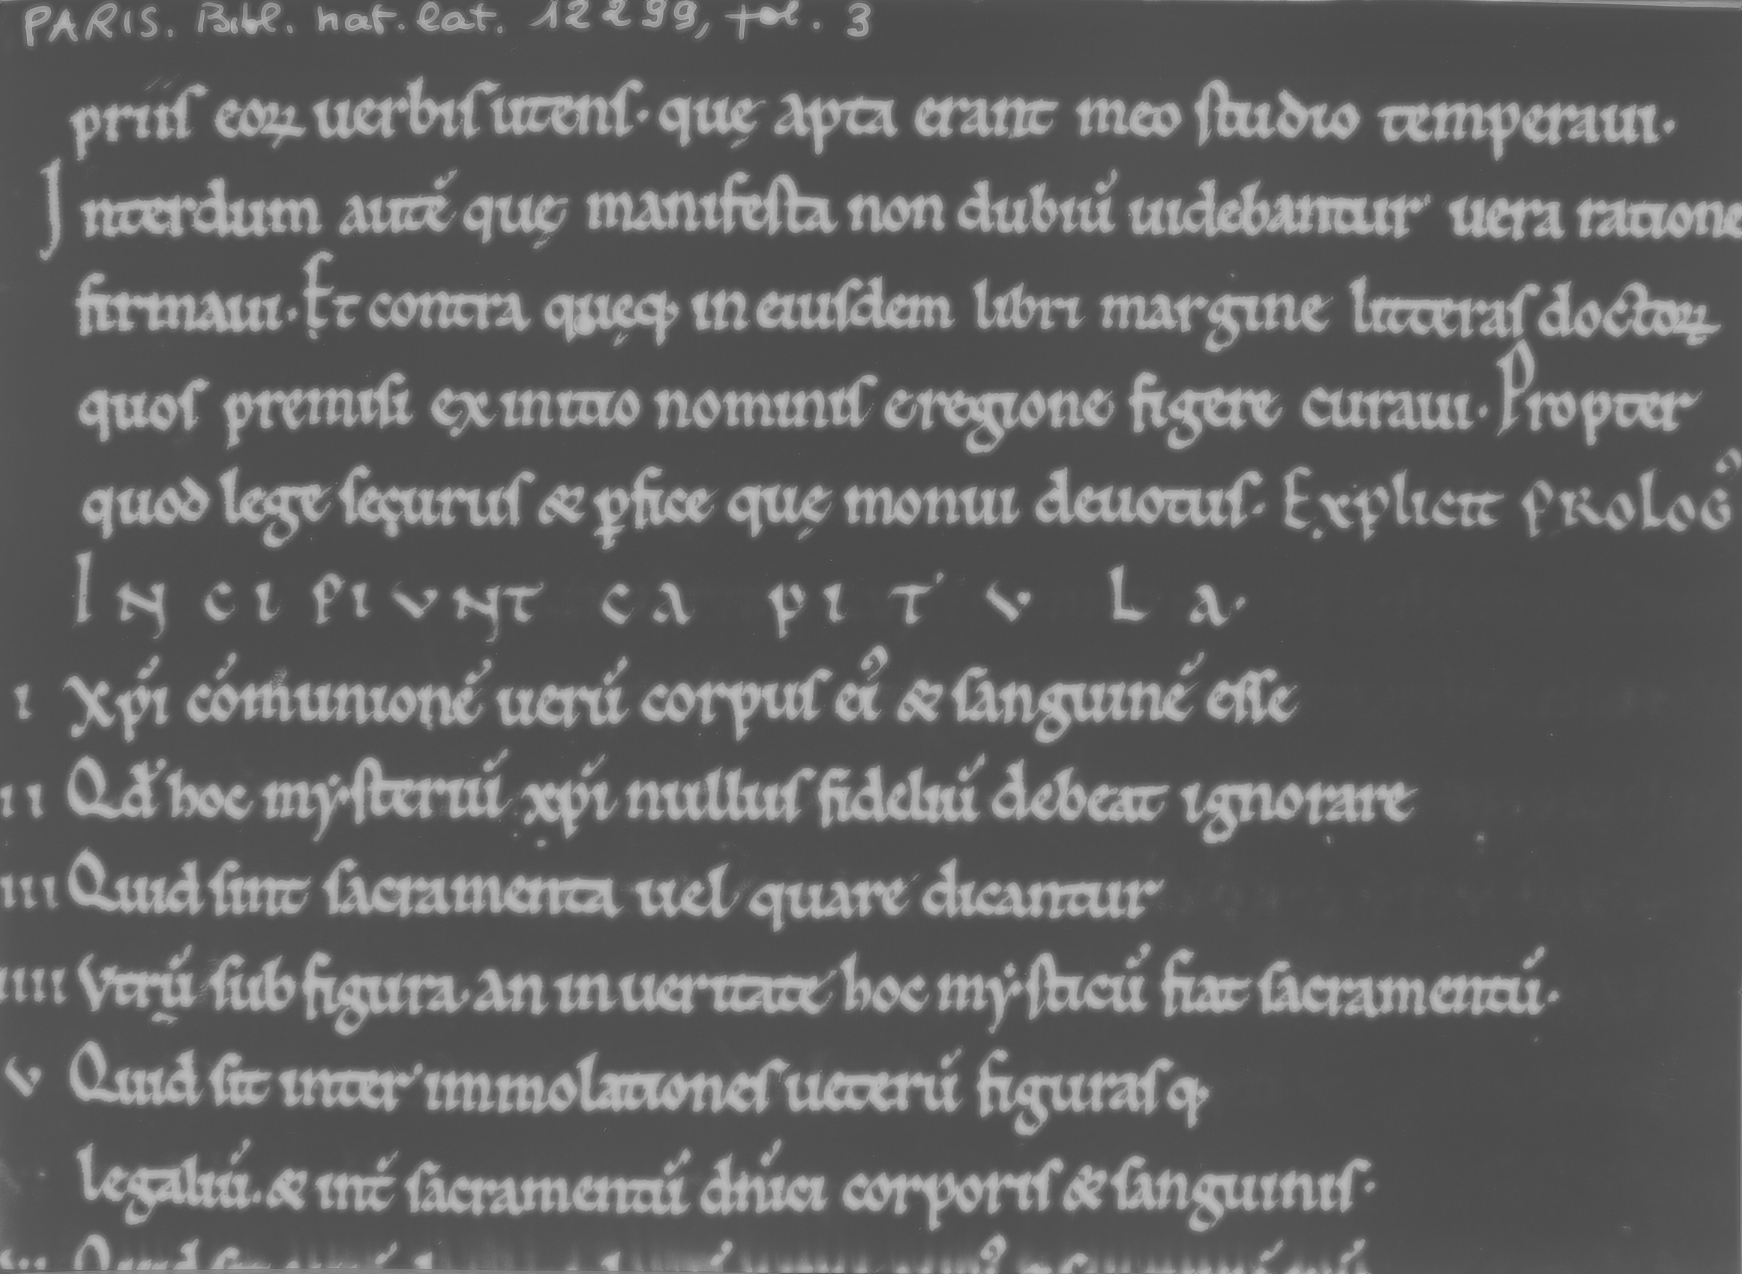 PARIS. Bibl. nat. lat. 12299, fol. 3
priis eoꝝ uerbis utens· quę apta erant meo studio temperaui·
Interdum autē quę manifesta non dubiū uidebantur uera ratione
firmaui· Et contra quęq; in eiusdem libri margine litteras doctoꝝ
quos premisi ex initio nominis e regione figere curaui· Propter
quod lege sęcurus & ꝑfice quę monui deuotus· Explicit PROLOGꝰ
INCIPIVNT CAPITVLA·
I Xp̄i cōmunionē uerū corpus eiꝰ & sanguinē esse
II Qđ hoc mẏsteriū xp̄i nullus fideliū debeat ignorare
III Quid sint sacramenta uel quare dicantur
IIII Vtrū sub figura an in ueritate hoc mẏsticū fiat sacramentū·
V Quid sit inter immolationes ueterū figurasq;
legaliū· & int̄ sacramentū dn̄ici corporis & sanguinis·